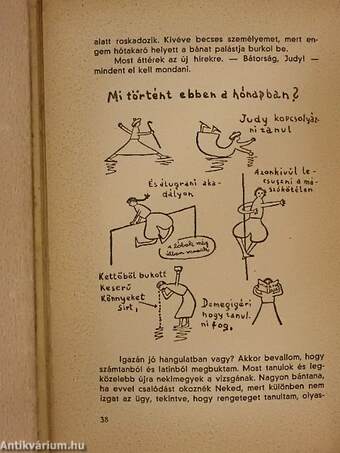 alatt roskadozik. Kivéve becses személyemet, mert en-
gem hótakaró helyett a bánat palástja burkol be.
Most áttérek az új hirekre. — Bátorság, Judy! —
mindent el kell mondani.
Mi történt ebben a hónapban?
Judy kopcsolyáz-
ni tanul
És átugrani aka-
dályon
Azonkívül le-
csuszni a má-
szókötélen
a lábak még
állva maradt
Kettőből bukott
Keserű
Könnyeket
Sírt,
Demegigéri
hogy tanul-
ni fog,
Igazán jó hangulatban vagy? Akkor bevallom, hogy
számtanból és latinból megbuktam. Most tanulok és leg-
közelebb újra nekimegyek a vizsgának. Nagyon bántana,
ha evvel csalódást okoznék Neked, mert különben nem
izgat az ügy, tekintve, hogy rengeteget tanultam, olyas-
38
Antikvárium.hu